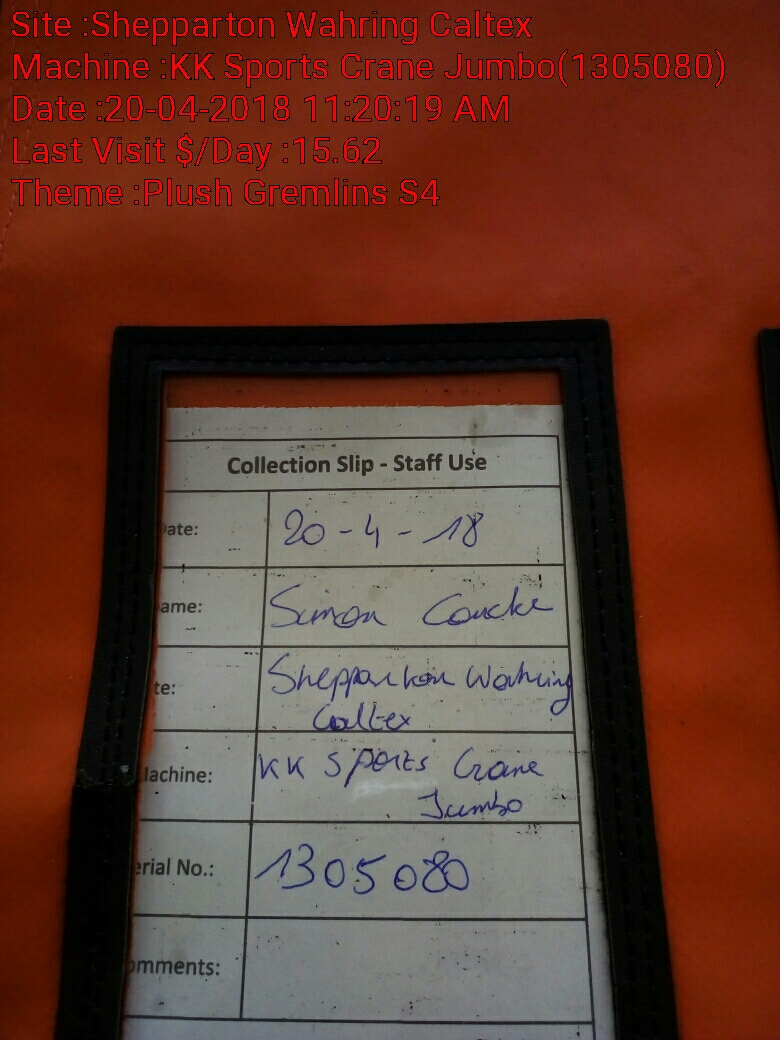 Site :Shepparton Wahring Caltex
Machine :KK Sports Crane Jumbo(1305080)
Date :20-04-2018 11:20:19 AM
Last Visit $/Day :15.62
Theme :Plush Gremlins S4
Collection Slip - Staff Use
ate: 20-4-18
ame: Simon
te: Shepparton Wahring
Caltex
achine: KK Sports Crane
Jumbo
erial No.: 1305080
omments: